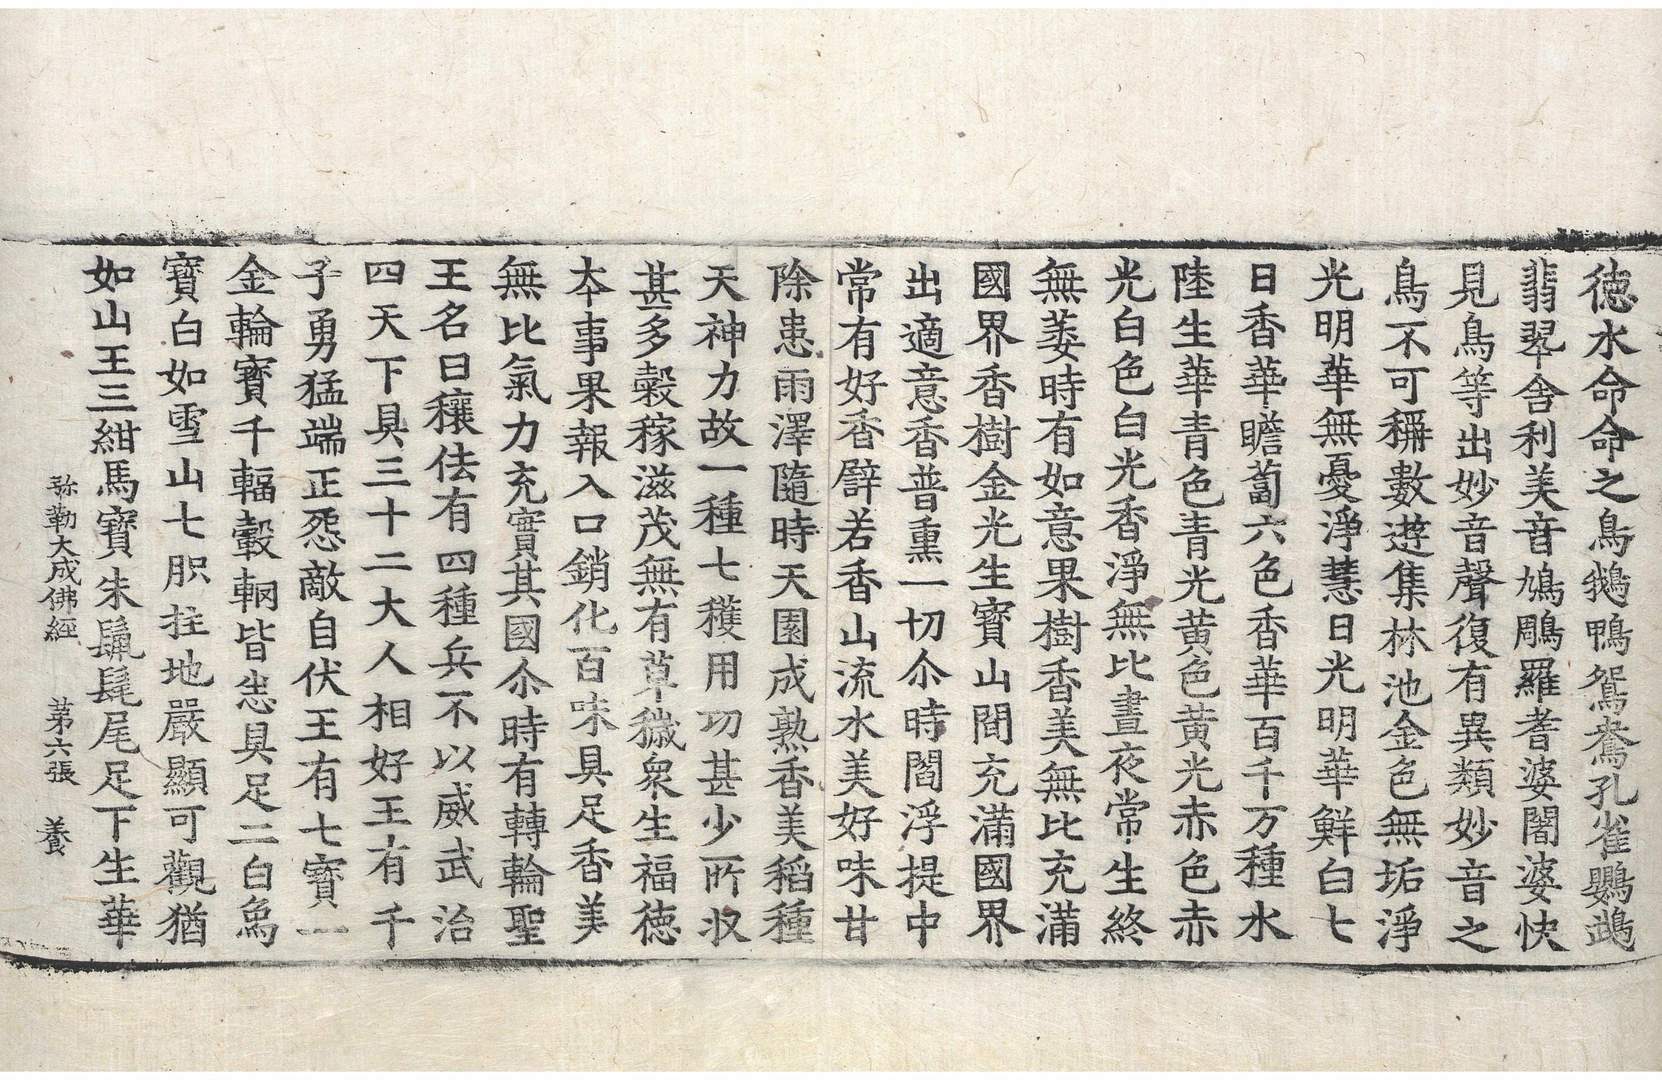 德水命命之鳥鵝鴨鴛鴦孔雀鸚鵡
翡翠舍利美音鳩鵰羅耆婆闍婆快
見鳥等出妙音聲復有異類妙音之
鳥不可稱數遊集林池金色無垢淨
光明華無憂淨慧日光明華鮮白七
日香華瞻蔔六色香華百千万種水
陸生華青色青光黃色黃光赤色赤
光白色白光香淨無比晝夜常生終
無萎時有如意果樹香美無比充滿
國界香樹金光生寶山間充滿國界
出適意香普熏一切尒時閻浮提中
常有好香譬若香山流水美好味甘
除患雨澤隨時天園成熟香美稻種
天神力故一種七穫用功甚少所收
甚多穀稼滋茂無有草穢衆生福德
夲事果報入口銷化百味具足香美
無比氣力充實其國尒時有轉輪聖
王名曰穰佉有四種兵不以威武治
四天下具三十二大人相好王有千
子勇猛端正怨敵自伏王有七寶一
金輪寶千輻轂輞皆悉具足二白烏
寶白如雪山七胑拄地嚴顯可觀猶
如山王三紺馬寶朱鬣髦尾足下生華
弥勒大成佛經 苐六張 養